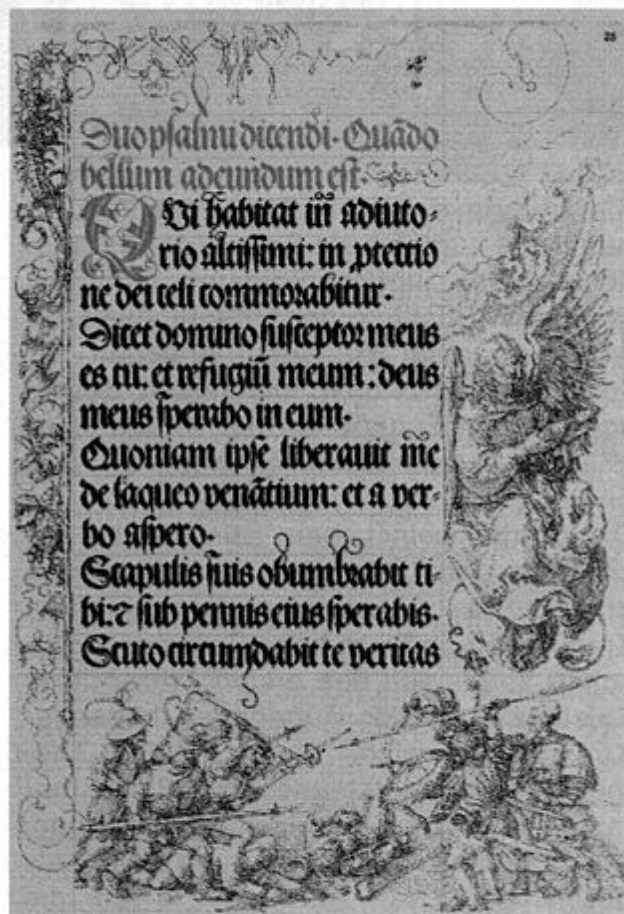 28
Duo psalmi dicendi. Quādo
bellum adeundum est.
QVi habitat in adiuto-
rio altissimi: in ꝓtectio
ne dei celi commorabitur.
Dicet domino susceptor meus
es tu: et refugiū meum: deus
meus sperabo in eum.
Quoniam ipse liberauit me
de laqueo venātium: et a ver-
bo aspero.
Scapulis suis obumbrabit ti-
bi: ⁊ sub pennis eius sperabis.
Scuto circumdabit te veritas